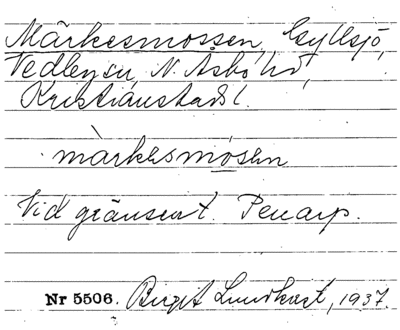 Märkesmossen, Gyllsjö,
Vedbysn, N. Åsbo hd,
Kristianstads l.
märkesmosen
Vid gränsen t. Penarp.
Nr 5506. Birgit Lundkvist, 1937.